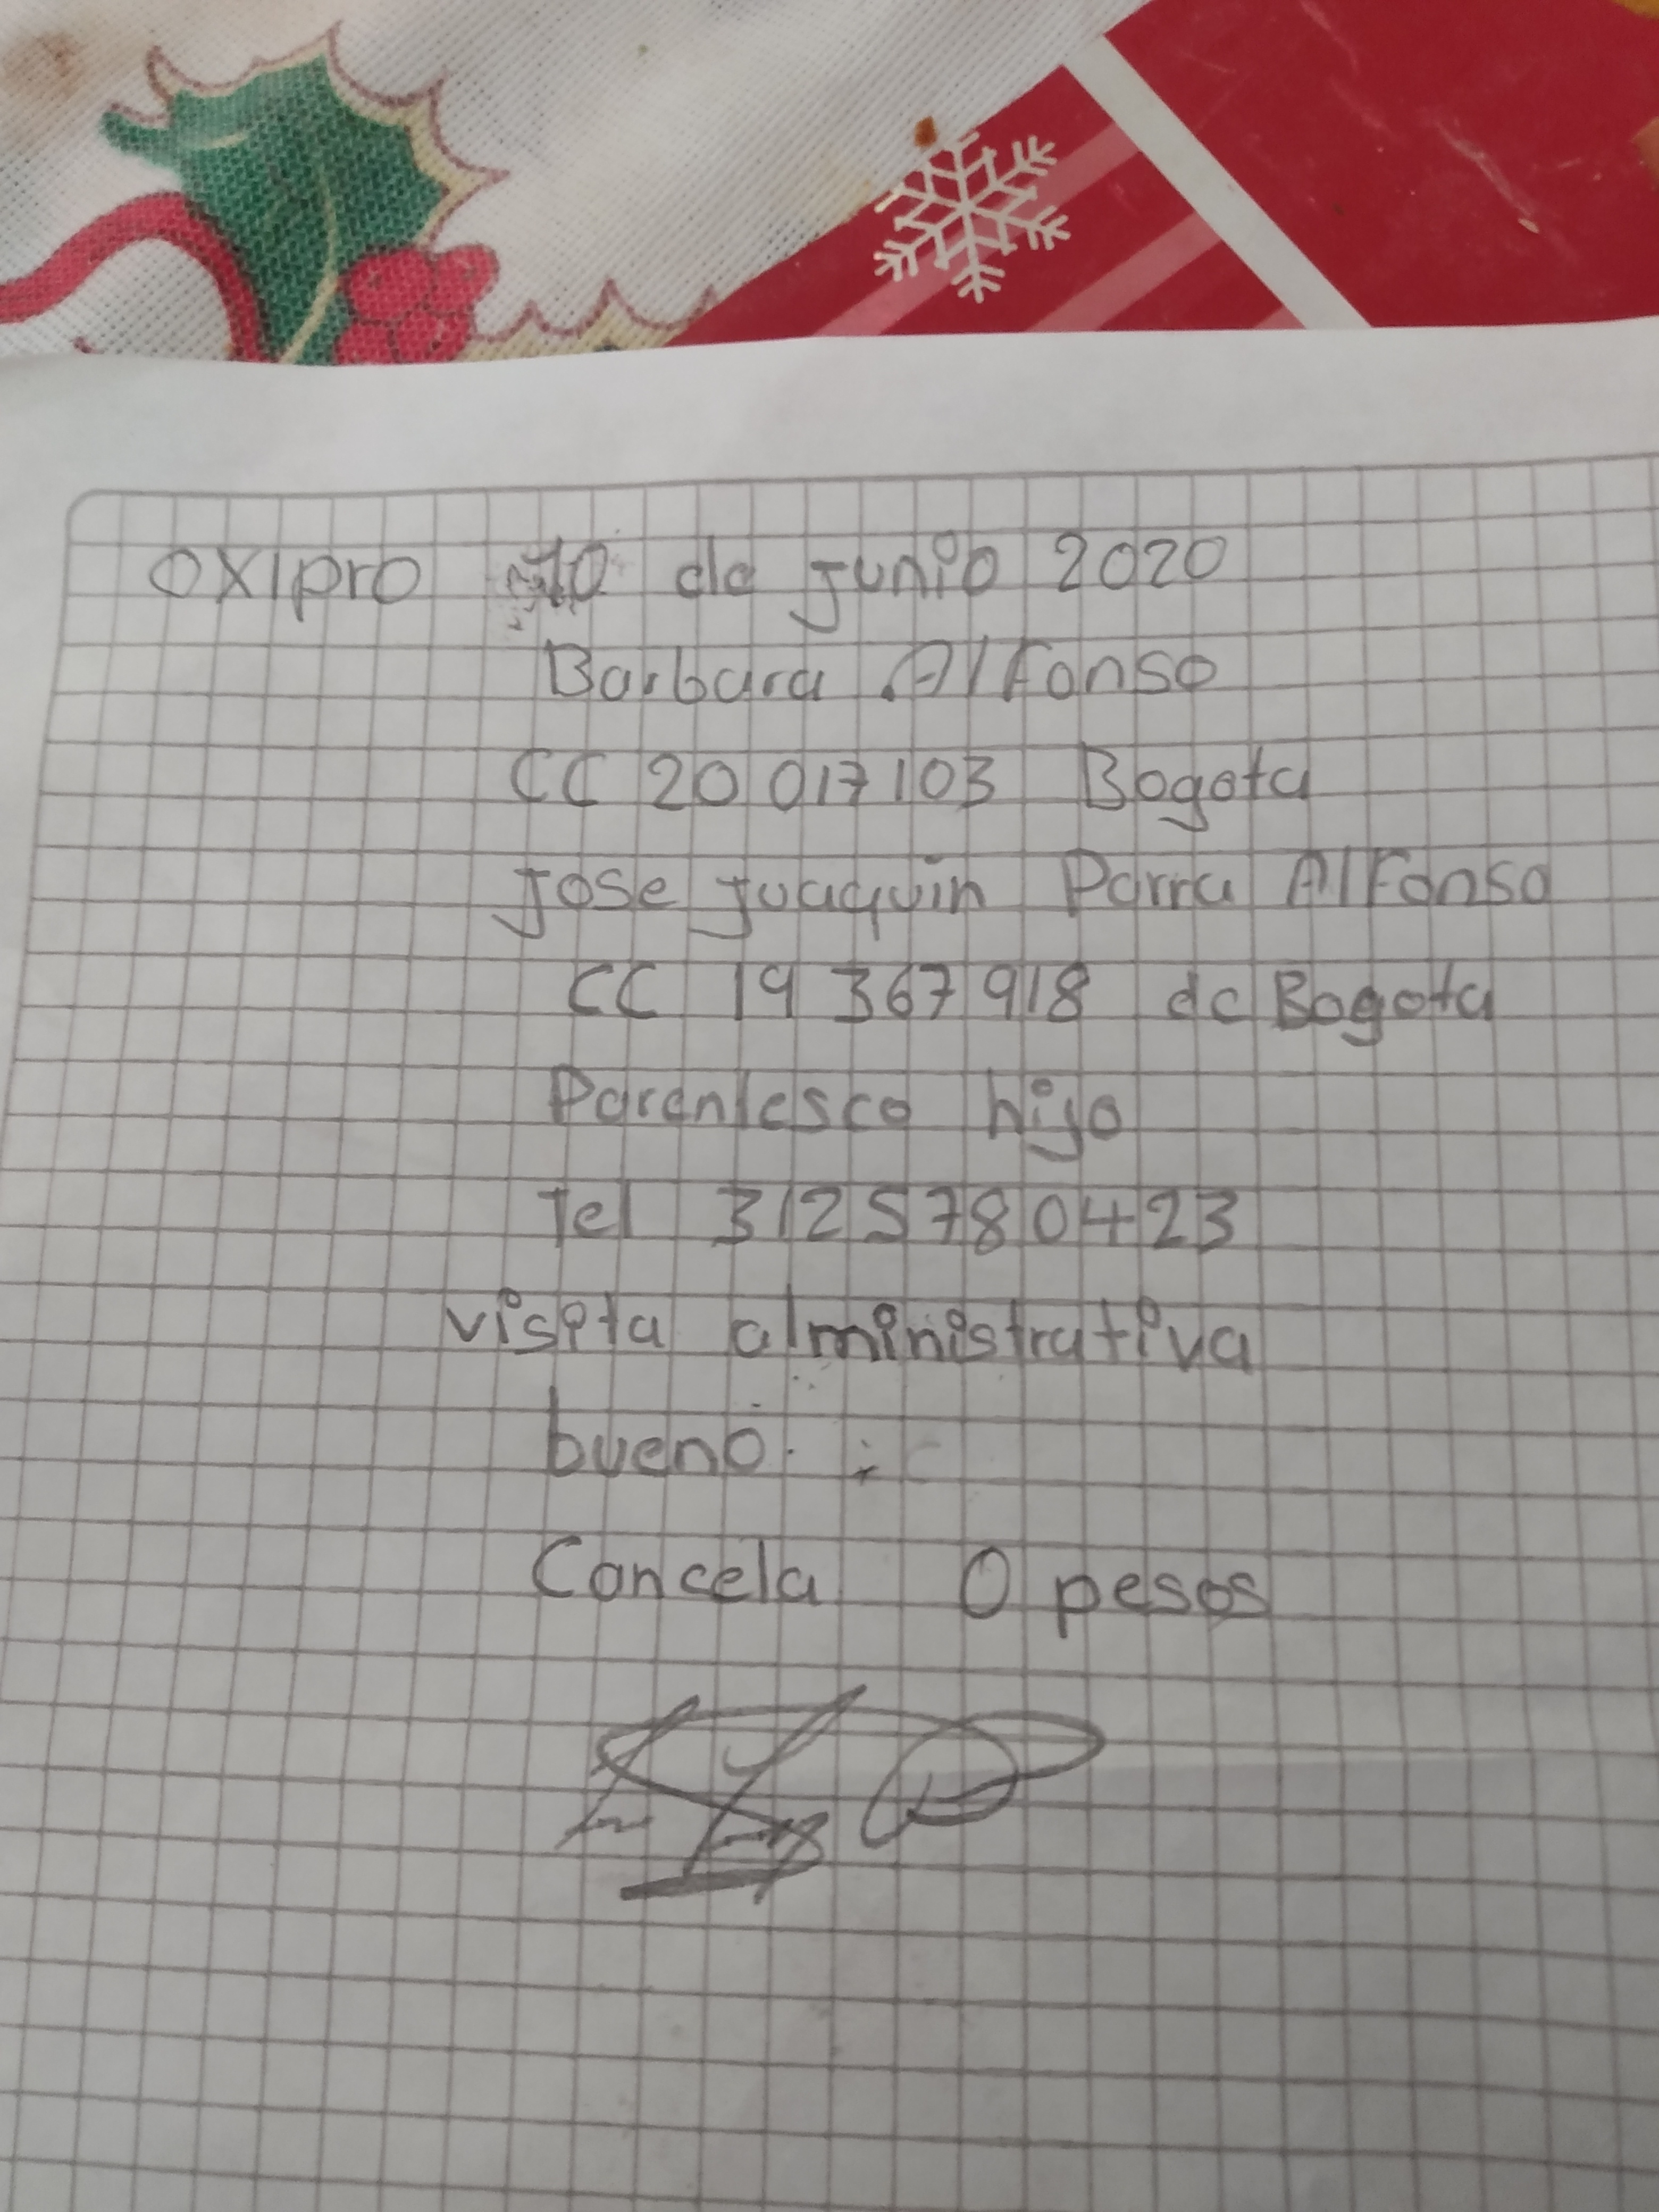 oxipro 10 de junio 2020
Barbara Alfonso
CC 20 017 103 Bogota
Jose Juaquin Parra Alfonso
CC 19 367 918 de Bogota
Parentesco hijo
Tel 3125780423
visita alministrativa
bueno.
Cancela 0 pesos